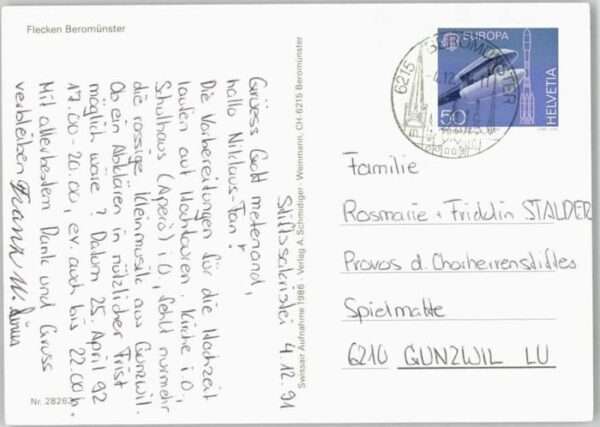 Flecken Beromünster
Stiftssakristei 4.12.91
Grüess Gott metenand,
hallo Niklaus-Fan!
Die Vorbereitungen für die Hochzeit
laufen auf Hochtouren. Kirche i.O,
Schulhaus (Apero) i.O, fehlt nurmehr
die rassige Kleinmusik aus Gunzwil.
Ob ein Abklären in nützlicher Frist
möglich wäre? Datum 25. April 92
17.00-20.00, ev. auch bis 22.00h.
Mit allerbestem Dank und Gruss
verbleiben Frank
Nr. 28262
Swissair Aufnahme 1986 - Verlag A. Schmidiger - Weinmann, CH-6215 Beromünster
6215 BEROMÜNSTER
EUROPA
HELVETIA
50
Familie
Rosmarie + Fridolin STALDER
Provos d. Chorherrenstiftes
Spielmatte
6210 GUNZWIL LU